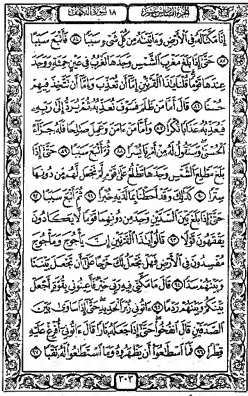 الجزء السادس عشر ١٨ سورة الكهف
إِنَّا مَكَّنَّا لَهُ فِي الْأَرْضِ وَءَاتَيْنَٰهُ مِن كُلِّ شَيْءٍ سَبَبًا ٨٤ فَأَتْبَعَ سَبَبًا
٨٥ حَتَّىٰ إِذَا بَلَغَ مَغْرِبَ الشَّمْسِ وَجَدَهَا تَغْرُبُ فِي عَيْنٍ حَمِئَةٍ وَوَجَدَ
عِندَهَا قَوْمًا قُلْنَا يَٰذَا الْقَرْنَيْنِ إِمَّا أَن تُعَذِّبَ وَإِمَّا أَن تَتَّخِذَ فِيهِمْ
حُسْنًا ٨٦ قَالَ أَمَّا مَن ظَلَمَ فَسَوْفَ نُعَذِّبُهُ ثُمَّ يُرَدُّ إِلَىٰ رَبِّهِ
فَيُعَذِّبُهُ عَذَابًا نُّكْرًا ٨٧ وَأَمَّا مَنْ ءَامَنَ وَعَمِلَ صَٰلِحًا فَلَهُ جَزَاءً
الْحُسْنَىٰ وَسَنَقُولُ لَهُ مِنْ أَمْرِنَا يُسْرًا ٨٨ ثُمَّ أَتْبَعَ سَبَبًا ٨٩ حَتَّىٰ إِذَا
بَلَغَ مَطْلِعَ الشَّمْسِ وَجَدَهَا تَطْلُعُ عَلَىٰ قَوْمٍ لَّمْ نَجْعَل لَّهُم مِّن دُونِهَا
سِتْرًا ٩٠ كَذَٰلِكَ وَقَدْ أَحَطْنَا بِمَا لَدَيْهِ خُبْرًا ٩١ ثُمَّ أَتْبَعَ سَبَبًا ٩٢
حَتَّىٰ إِذَا بَلَغَ بَيْنَ السَّدَّيْنِ وَجَدَ مِن دُونِهِمَا قَوْمًا لَّا يَكَادُونَ
يَفْقَهُونَ قَوْلًا ٩٣ قَالُوا يَٰذَا الْقَرْنَيْنِ إِنَّ يَأْجُوجَ وَمَأْجُوجَ
مُفْسِدُونَ فِي الْأَرْضِ فَهَلْ نَجْعَلُ لَكَ خَرْجًا عَلَىٰ أَن تَجْعَلَ بَيْنَنَا
وَبَيْنَهُمْ سَدًّا ٩٤ قَالَ مَا مَكَّنِّي فِيهِ رَبِّي خَيْرٌ فَأَعِينُونِي بِقُوَّةٍ أَجْعَلْ
بَيْنَكُمْ وَبَيْنَهُمْ رَدْمًا ٩٥ ءَاتُونِي زُبَرَ الْحَدِيدِ حَتَّىٰ إِذَا سَاوَىٰ بَيْنَ
الصَّدَفَيْنِ قَالَ انفُخُوا حَتَّىٰ إِذَا جَعَلَهُ نَارًا قَالَ ءَاتُونِي أُفْرِغْ عَلَيْهِ
قِطْرًا ٩٦ فَمَا اسْطَٰعُوا أَن يَظْهَرُوهُ وَمَا اسْتَطَٰعُوا لَهُ نَقْبًا ٩٧
٣٠٣